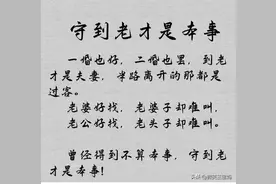 守到老才是本事
一婚也好，二婚也罢，到老
才是夫妻，半路离开的那都是
过客。
老婆好找，老婆子却难叫，
老公好找，老头子却难叫。
曾经得到不算本事，守到老
才是本事！